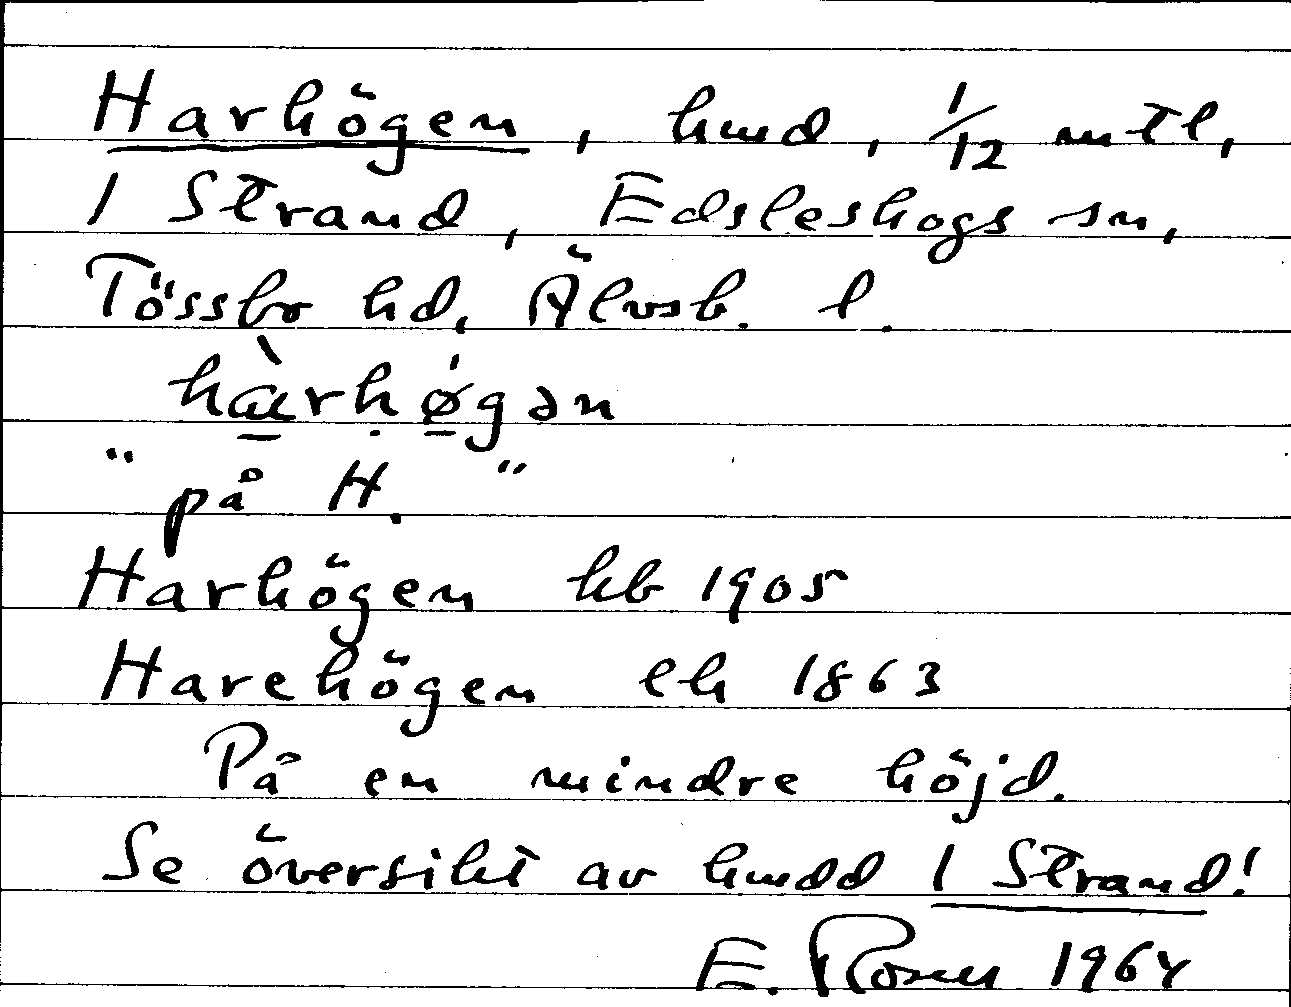 Harhögen, hmd, 1/12 mtl,
1 Strand, Edsleskogs sn,
Tössbo hd, Älvsb. l.
hàrhø̣gən
"på H."
Harhögen kb 1905
Harehögen ek 1863
På en mindre höjd.
Se översikt av hmdd 1 Strand!
E. Rosell 1964